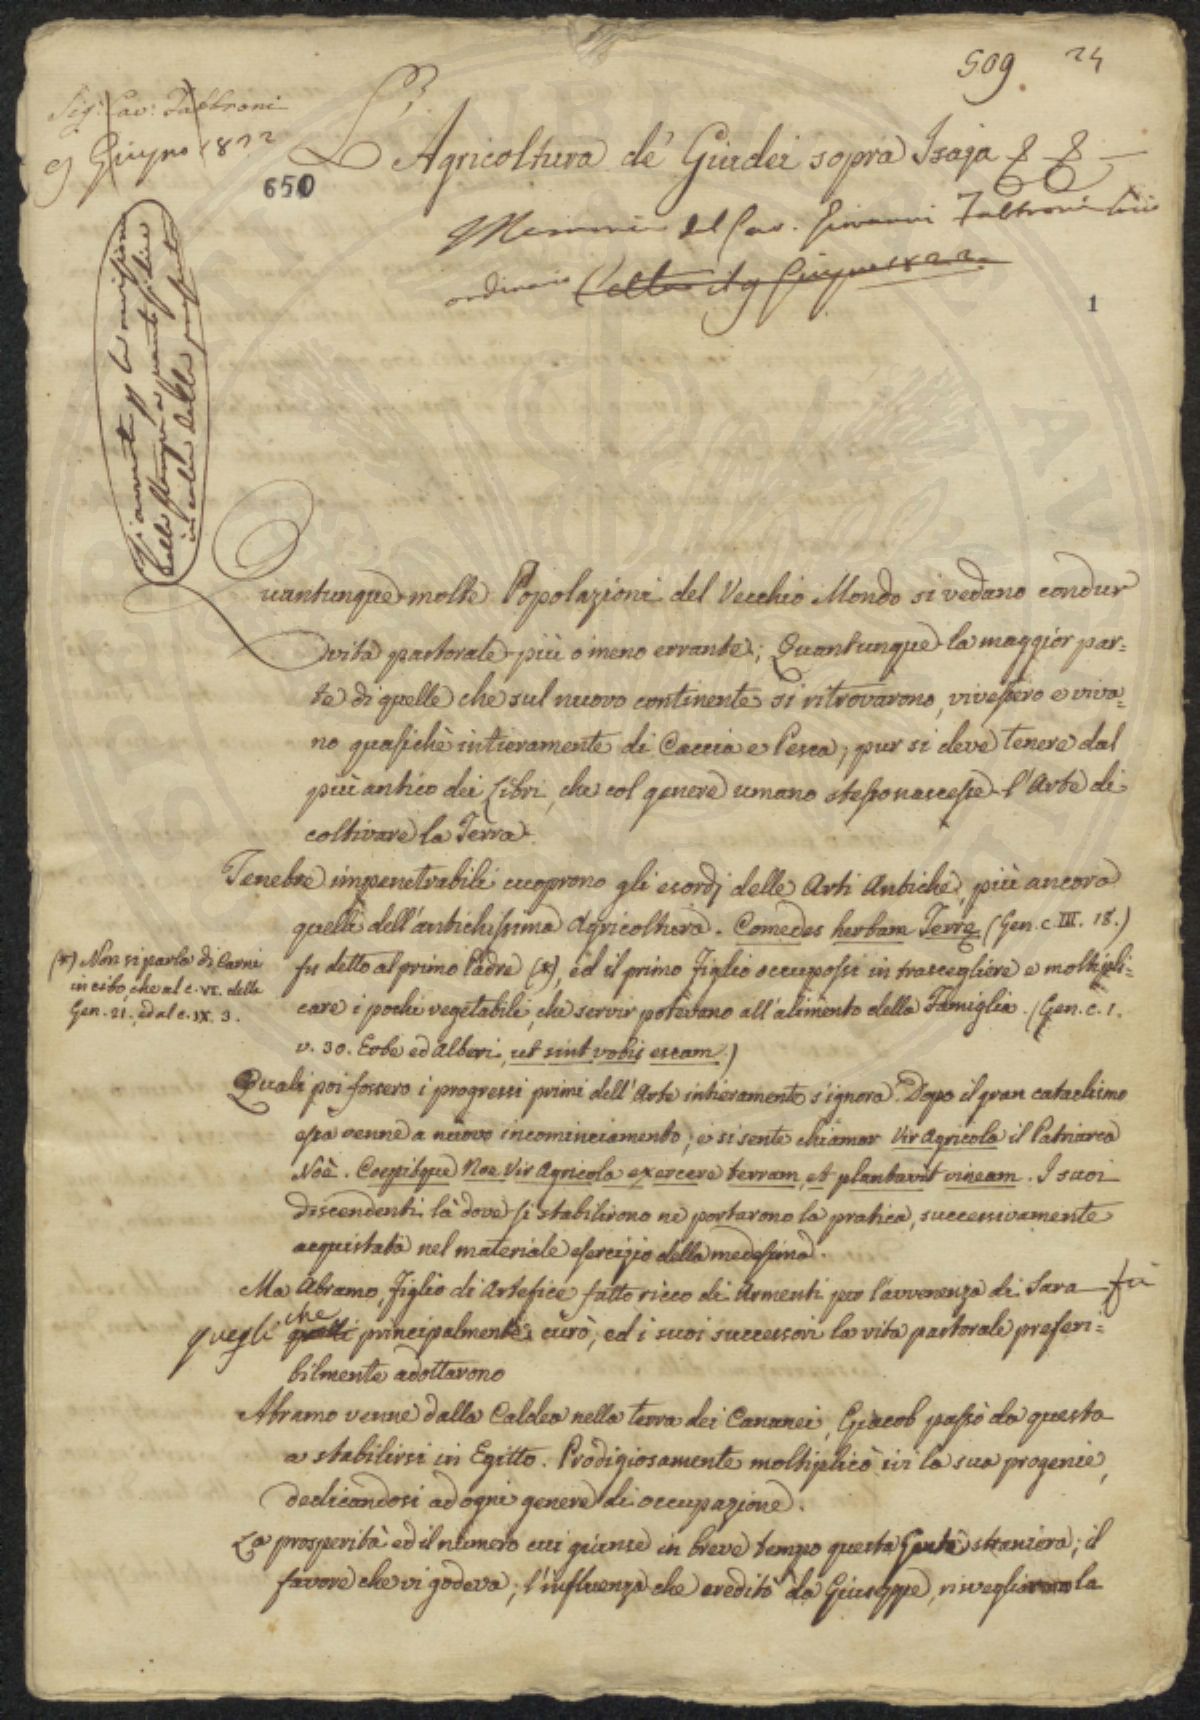 509. 24
Sig: Cav: Fabbroni
9 Giugno 1822
L'
Agricoltura de' Giudei sopra Isaja
650
Memoria del Cav. Giovanni Fabbroni Socio
ordinario Letta il 9 Giugno 1822.
1
Quantunque molte Popolazioni del Vecchio Mondo si vedano condur
vita pastorale più o meno errante; Quantunque la maggior par=
te di quelle che sul nuovo continente si ritrovarono, vivessero e viva=
no quasichè intieramente di Caccia e Pesca; pur si deve tenere dal
più antico dei Libri, che col genere umano stesso nascesse l'Arte di
coltivare la Terra.
Tenebre impenetrabili cuoprono gli esordj delle Arti Antiche, più ancora
quelli dell'antichissima Agricoltura. Comedes herbam Terrę (Gen. c. III. 18.)
fu detto al primo Padre (*), ed il primo Figlio occupossi in trascegliere e moltipli=
care i pochi vegetabili, che servir potevano all'alimento della Famiglia. (Gen. c. 1.
v. 30. Erbe ed Alberi, ut sint vobis escam.)
(*) Non si parla di Carni
in cibo, che al c. VI. della
Gen. 21. ed al c. IX. 3.
Quali poi fossero i progressi primi dell'Arte intieramente s'ignora. Dopo il gran cataclismo
essa venne a nuovo incominciamento; e si sente chiamar Vir Agricola il Patriarca
Noè. Coepitque Noe Vir Agricola exercere terram, et plantavit vineam. I suoi
discendenti là dove si stabilirono ne portarono la pratica, successivamente
acquistata nel materiale esercizio della medesima.
Ma Abramo, Figlio di Artefice fatto ricco di Armenti per l'avvenenza di Sara fù
quegli che principalmente curò, ed i suoi successori la vita pastorale preferi=
bilmente adottarono
Abramo venne dalla Caldea nella terra dei Cananei, Giacob passò da questa
a stabilirsi in Egitto. Prodigiosamente moltiplicò ivi la sua progenie,
dedicandosi ad ogni genere di occupazione.
La prosperità ed il numero cui giunse in breve tempo questa Gente straniera; il
favore che vi godeva; l'influenza che ereditò da Giuseppe, risvegliarono la